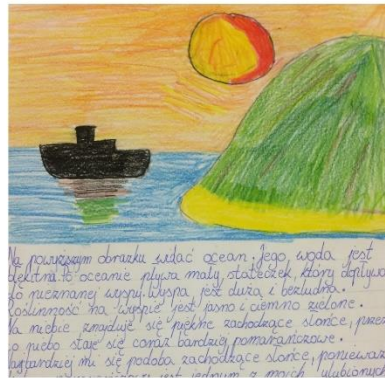 Na powyższym obrazku widać ocean. Jego woda jest
błękitna. Po oceanie pływa mały stateczek, który dopływa
do nieznanej wyspy. Wyspa jest duża i bezludna.
Roślinność na wyspie jest jasno i ciemno zielone.
Na niebie znajduje się piękne zachodzące słońce, przez
co niebo staje się coraz bardziej pomarańczowe.
Najbardziej mi się podoba zachodzące słońce, ponieważ
jest jednym z moich ulubionych